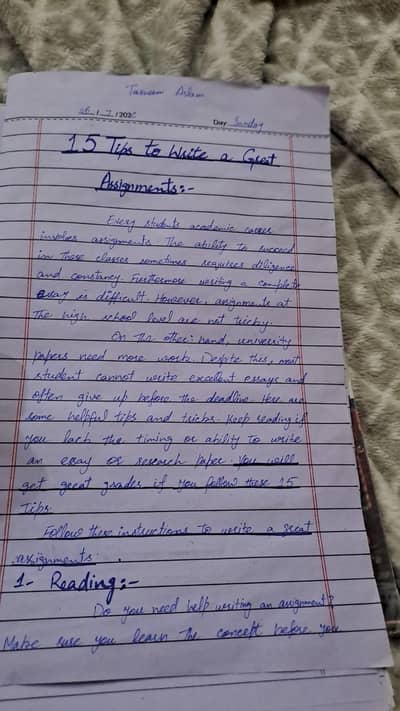 Tasneem Aslam
26 / 7 / 202
Day Sunday
15 Tips to Write a Great
Assignments:-
Every students academic career
involves assignments. The ability to succeed
in these classes sometimes requires diligence
and constancy. Furthermore writing a complete
essay is difficult. However, assignments at
the high school level are not tricky.
On the other hand, university
papers need more work. Despite this, most
student cannot write excellent essays and
often give up before the deadline. Here are
some helpful tips and tricks. Keep reading if
you lack the timing or ability to write
an essay or research paper. You will
get great grades if you follow these 15
Tips.
Follow these instructions to write a great
assignments.
1- Reading:-
Do you need help writing an assignment?
Make sure you learn the concept before you